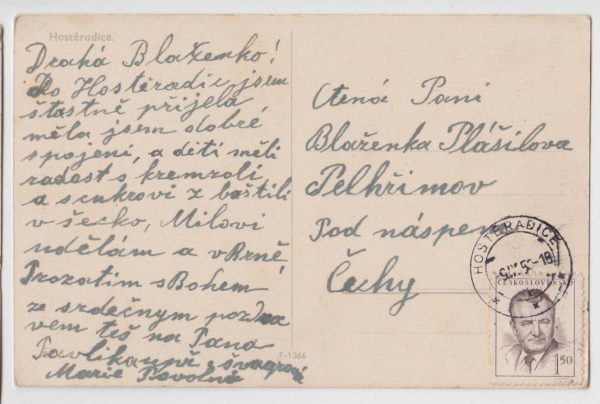 Hostěradice.
Drahá Blaženko!
Do Hostěradic jsem
štastně přijela,
měla jsem dobré
spojení, a děti měli
radost s kremrolí
a s cukroví z baštili
všecko, Milovi
udělám a v Brně,
Prozatim s Bohem
ze srdečným pozdra
vem těš na Pana
Pavlika
švagrová
Marie Povolná
F-1366
Ctená Paní
Blaženka Plášilova
Pelhřimov
Pod náspem
Čechy
HOSTĚRADICE
ČESKOSLOVENSKO
1.50